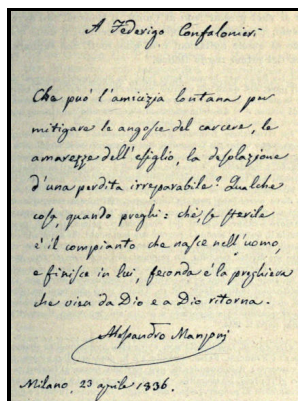 A Federigo Confalonieri
Che può l'amicizia lontana per
mitigare le angosce del carcere, le
amarezze dell'esiglio, la desolazione
d'una perdita irreparabile? Qualche
cosa, quando preghi: chè, se sterile
è il compianto che nasce nell'uomo,
e finisce in lui, feconda è la preghiera
che vien da Dio e a Dio ritorna.
Alessandro Manzoni
Milano, 23 aprile 1836.